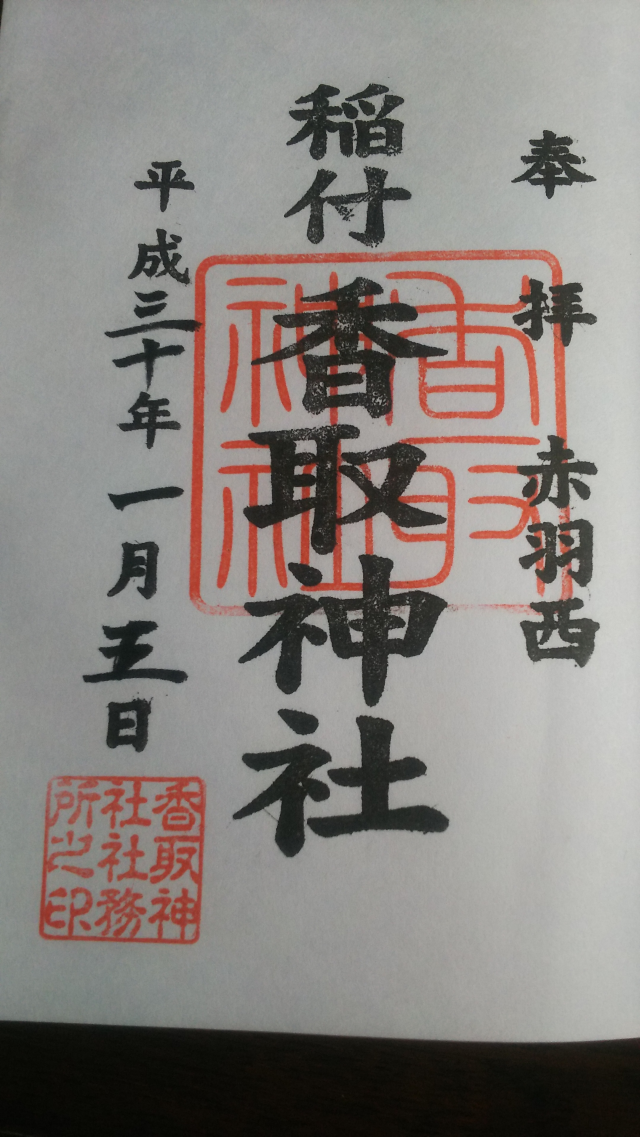 奉拝 赤羽西
稲付
香取神社
香取
神社
平成三十年一月五日
香取神
社社務
所之印